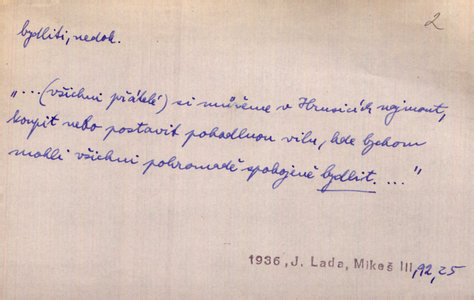 2
bydliti, nedok.
"...(všichni přátelé) si můžeme v Hrusicích najmout,
koupit nebo postavit pohodlnou vilu, kde bychom
mohli všichni pohromadě spokojeně bydlit. ..."
1936, J. Lada, Mikeš III, 92, 25